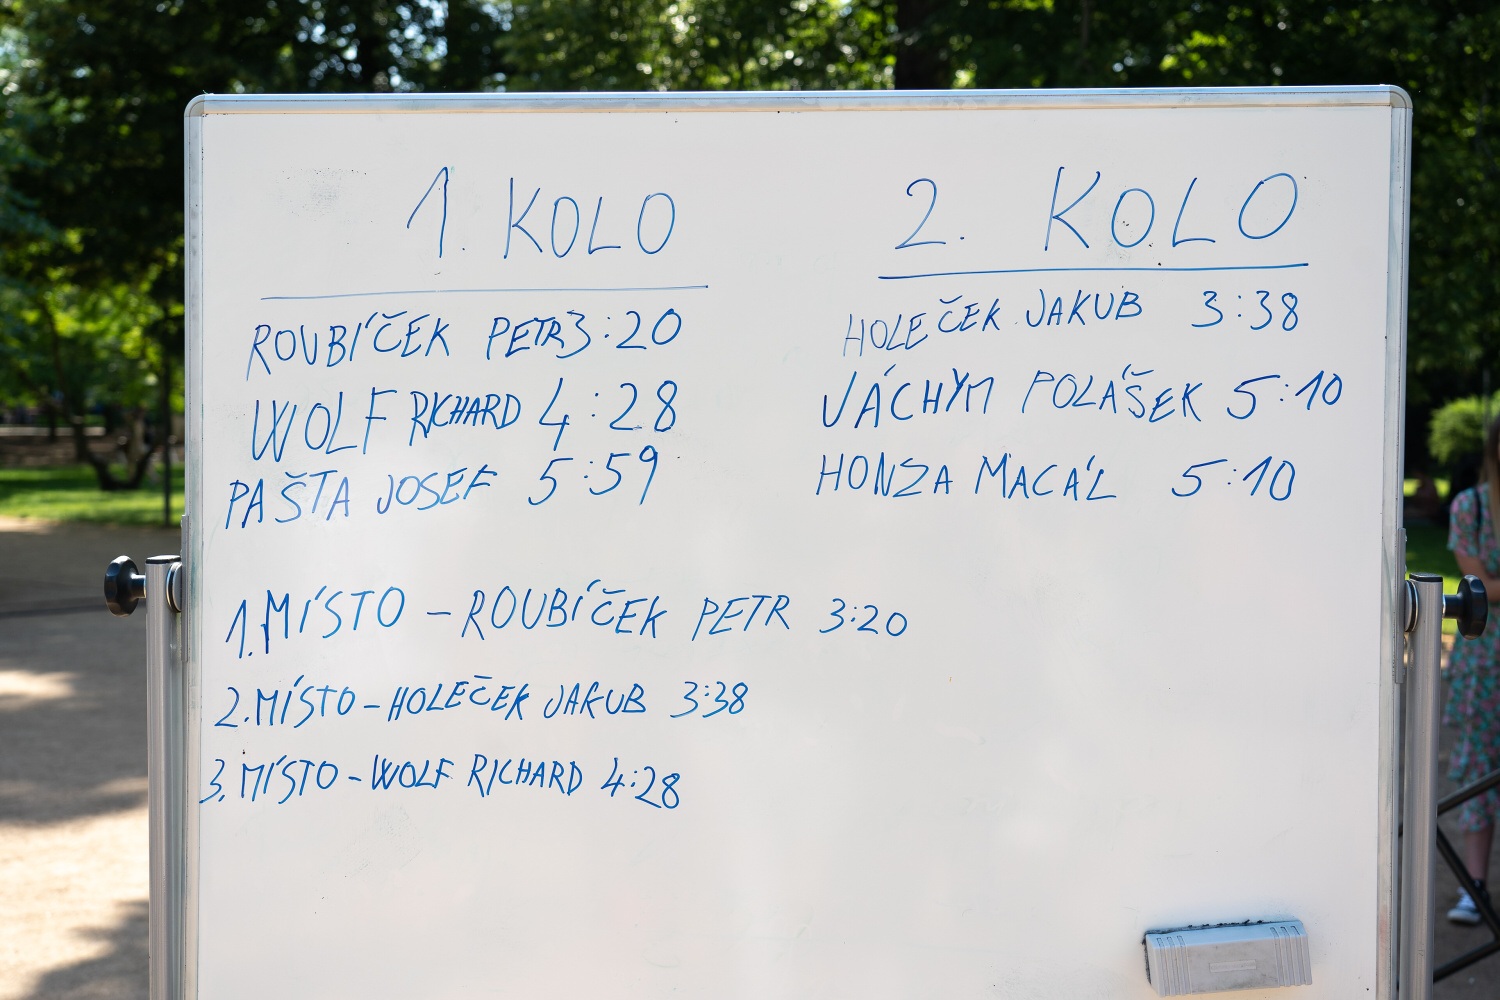 1. KOLO
ROUBÍČEK PETR 3:20
WOLF RICHARD 4:28
PAŠTA JOSEF 5:59
2. KOLO
HOLEČEK JAKUB 3:38
JÁCHYM POLÁŠEK 5:10
HONZA MACÁL 5:10
1. MÍSTO – ROUBÍČEK PETR 3:20
2. MÍSTO – HOLEČEK JAKUB 3:38
3. MÍSTO – WOLF RICHARD 4:28